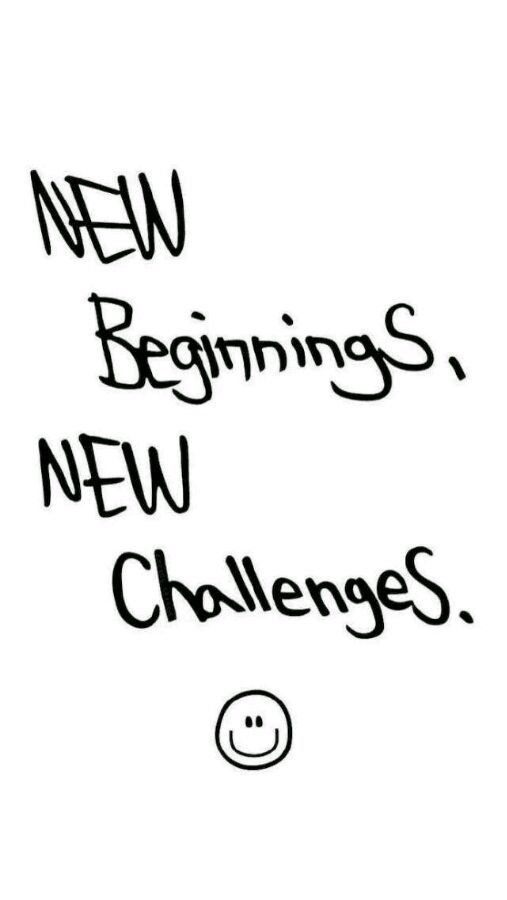 NEW
BeginningS,
NEW
ChallengeS.